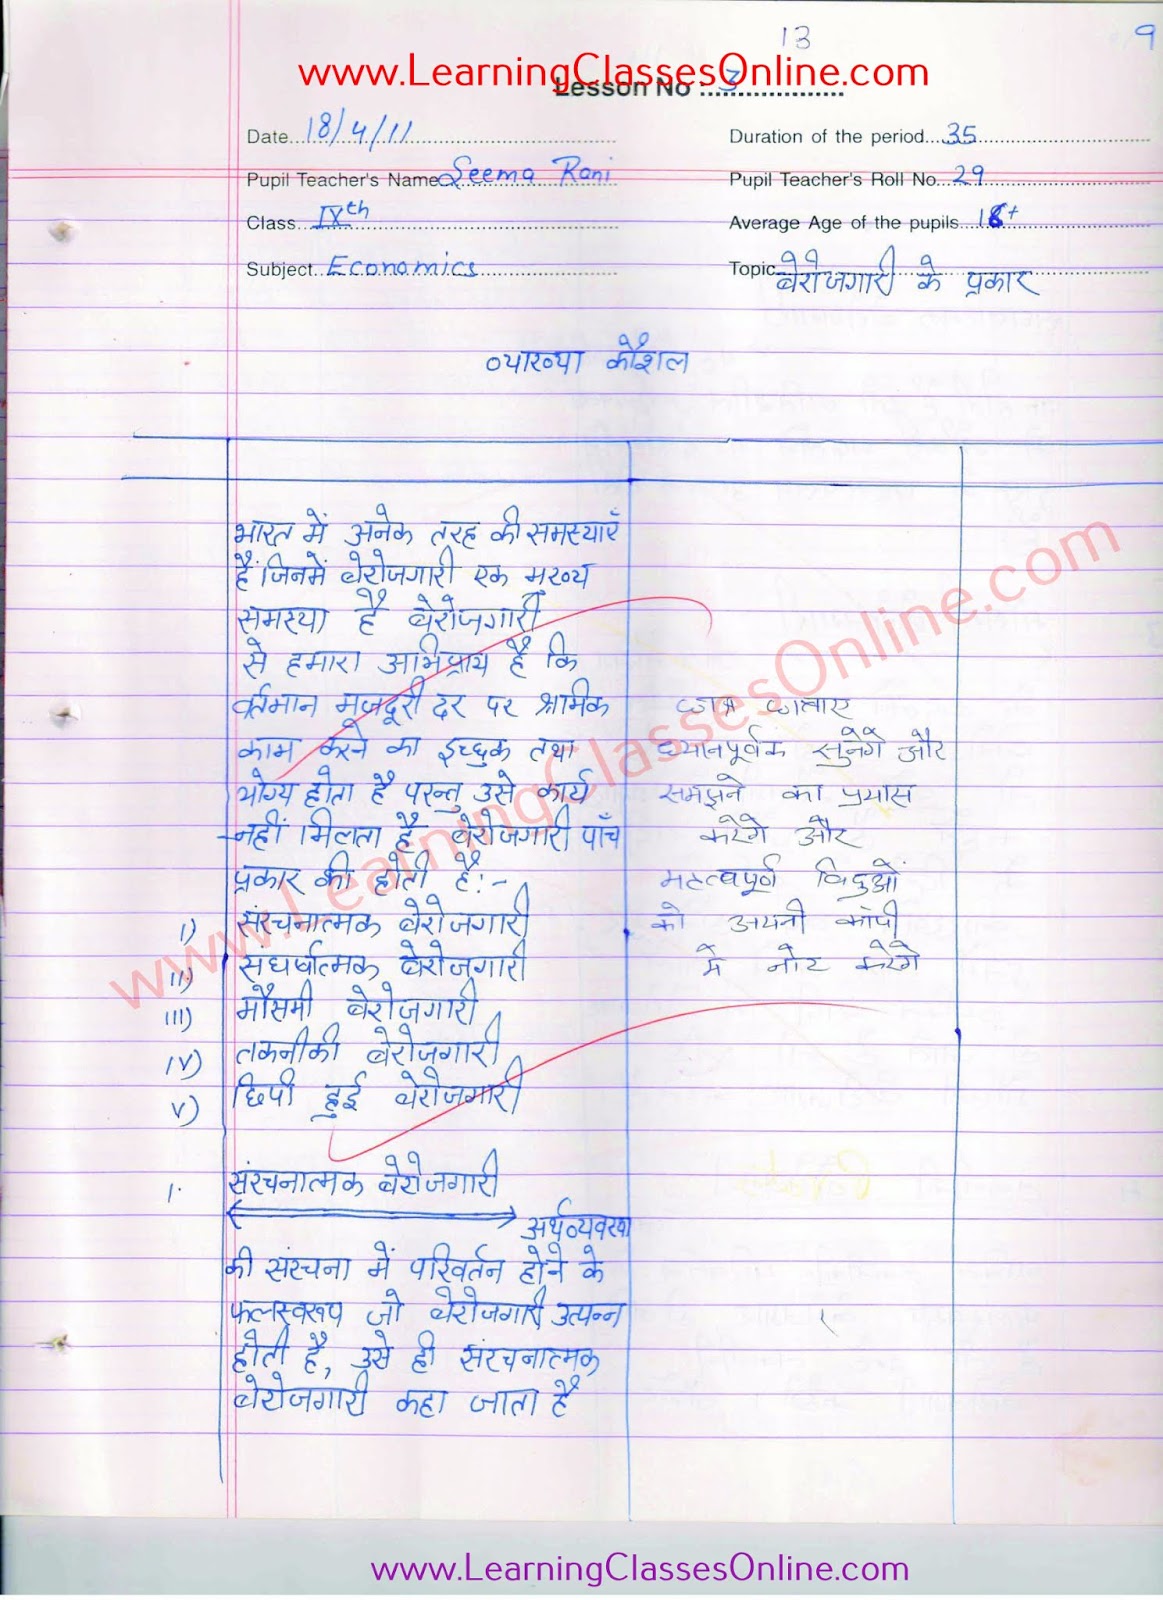 13
9
www.LearningClassesOnline.com
Lesson No ....3....
Date...18/4/11
Duration of the period...35
Pupil Teacher's Name Seema Rani
Pupil Teacher's Roll No...29
Class...IXth
Average Age of the pupils...18+
Subject...Economics
Topic...बेरोजगारी के प्रकार
व्याख्या कौशल
भारत में अनेक तरह की समस्याएँ
हैं जिनमें बेरोजगारी एक मुख्य
समस्या है बेरोजगारी
से हमारा अभिप्राय है कि
वर्तमान मजदूरी दर पर श्रमिक
काम करने का इच्छुक तथा
योग्य होता है परन्तु उसे कार्य
नहीं मिलता है बेरोजगारी पाँच
प्रकार की होती है:-
I) संरचनात्मक बेरोजगारी
II) संघर्षात्मक बेरोजगारी
III) मौसमी बेरोजगारी
IV) तकनीकी बेरोजगारी
V) छिपी हुई बेरोजगारी
छात्र छात्राए
ध्यानपूर्वक सुनेगे और
समझने का प्रयास
करेगे और
महत्वपूर्ण बिदुओं
को अपनी कॉपी
मे नोट करेगे
1. संरचनात्मक बेरोजगारी
अर्थव्यवस्था
की संरचना में परिवर्तन होने के
फलस्वरूप जो बेरोजगारी उत्पन्न
होती है, उसे ही संरचनात्मक
बेरोजगारी कहा जाता है
www.LearningClassesOnline.com
www.LearningClassesOnline.com